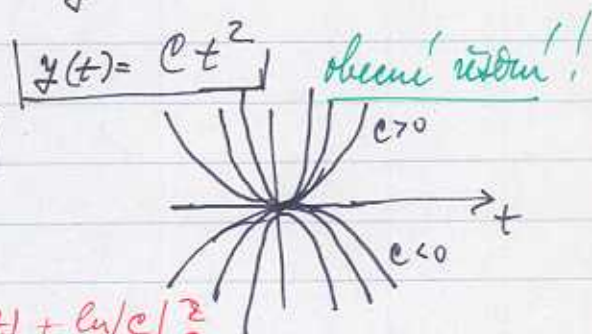 y(t) = C t²
obecné řešení!
C>0
t
C<0
+ ln|C|